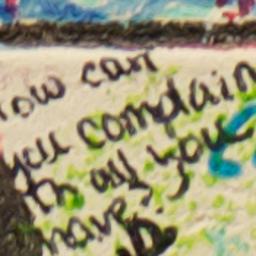 ow can
you complain
th all you
have?